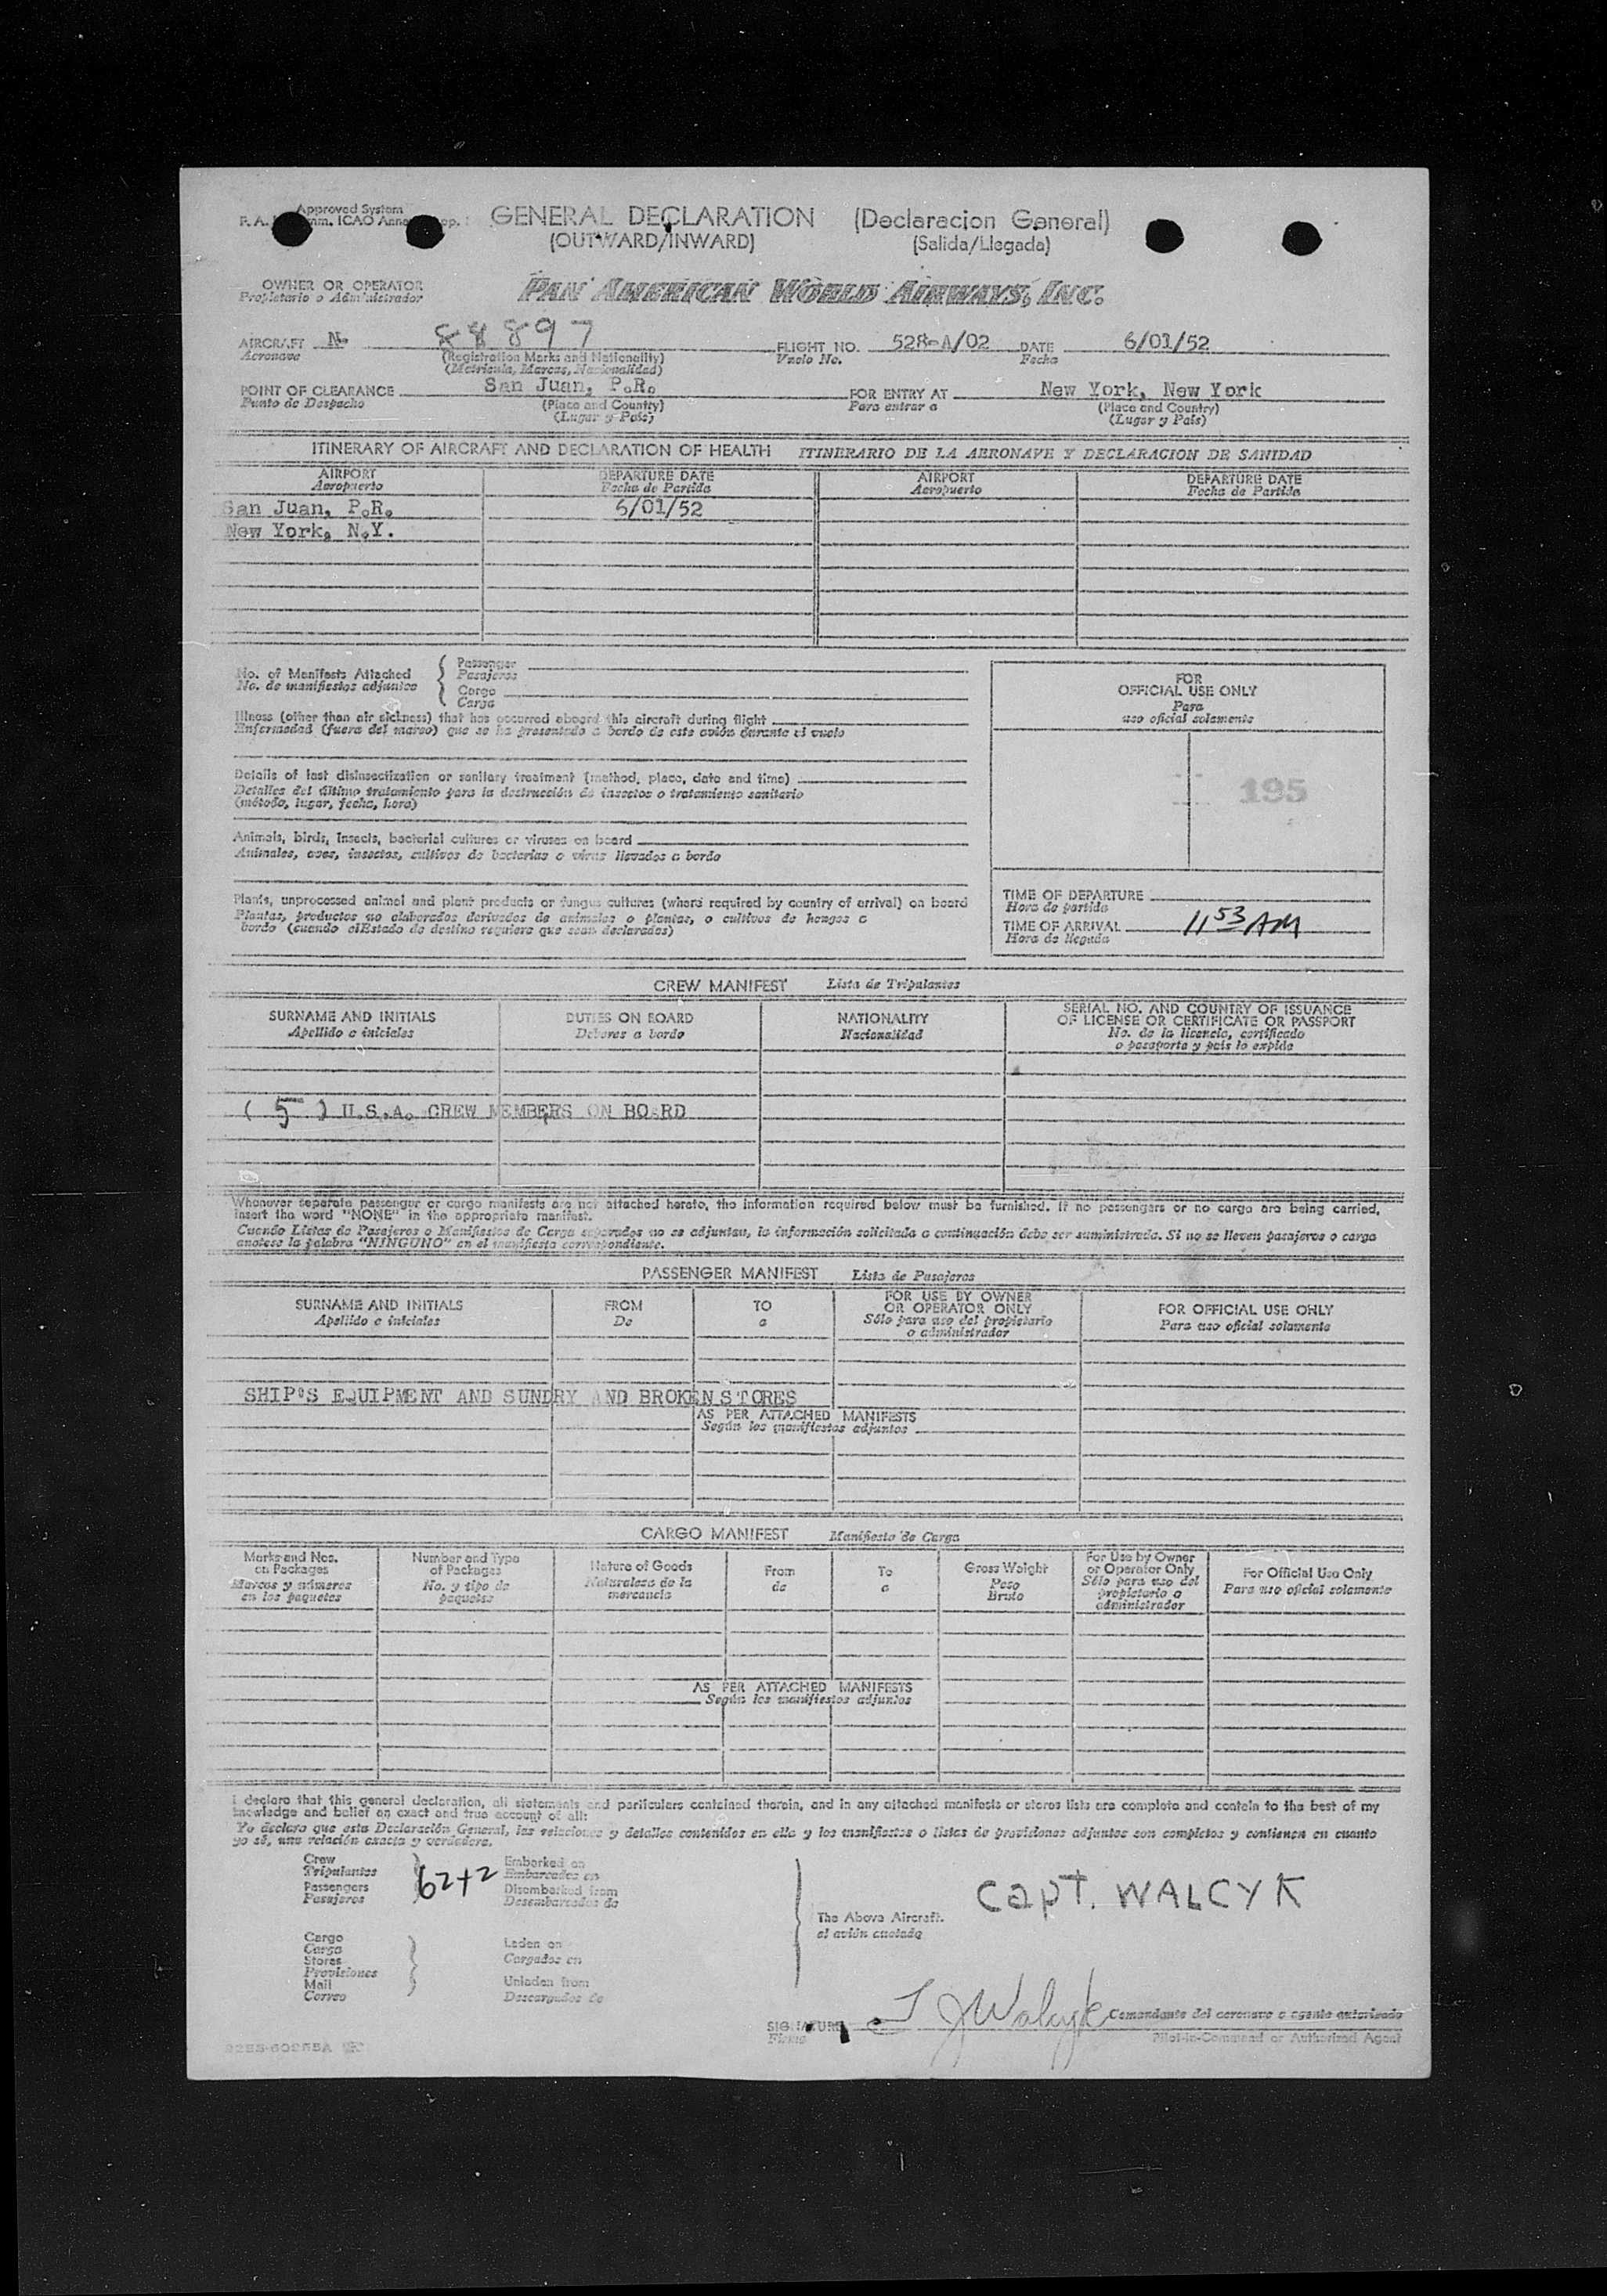 Approved System
GENERAL DECLARATION (Declaracion General)
(OUTWARD/INWARD) (Salida/Llegada)
OWNER OR OPERATOR
Propietario o Administrador
PAN AMERICAN WORLD AIRWAYS, INC.
AIRCRAFT N- 88897 FLIGHT NO. 528-A/02 DATE 6/01/52
Aeronave (Registration Marks and Nationality) Vuelo No. Fecha
(Matricula, Marcas, Nacionalidad)
POINT OF CLEARANCE San Juan, P.R. FOR ENTRY AT New York, New York
Punto de Despacho (Place and Country) Para entrar a (Place and Country)
(Lugar y Pais) (Lugar y Pais)
ITINERARY OF AIRCRAFT AND DECLARATION OF HEALTH ITINERARIO DE LA AERONAVE Y DECLARACION DE SANIDAD
AIRPORT DEPARTURE DATE AIRPORT DEPARTURE DATE
Aeropuerto Fecha de Partida Aeropuerto Fecha de Partida
San Juan, P.R. 6/01/52
New York, N.Y.
No. of Manifests Attached
No. de manifiestos adjuntos
Passenger
Pasajeros
Cargo
Carga
Illness (other than air sickness) that has occurred aboard this aircraft during flight
Enfermedad (fuera del mareo) que se ha presentado a bordo de este avión durante el vuelo
Details of last disinsectization or sanitary treatment (method, place, date and time)
Detalles del último tratamiento para la destrucción de insectos o tratamiento sanitario
(método, lugar, fecha, hora)
Animals, birds, insects, bacterial cultures or viruses on board
Animales, aves, insectos, cultivos de bacterias o virus llevados a bordo
Plants, unprocessed animal and plant products or fungus cultures (where required by country of arrival) on board
Plantas, productos no elaborados derivados de animales o plantas, o cultivos de hongos a
bordo (cuando el Estado de destino requiera que sean declarados)
FOR
OFFICIAL USE ONLY
Para
uso oficial solamente
195
TIME OF DEPARTURE
Hora de partida
TIME OF ARRIVAL 11 53 AM
Hora de llegada
CREW MANIFEST Lista de Tripulantes
SURNAME AND INITIALS DUTIES ON BOARD NATIONALITY SERIAL NO. AND COUNTRY OF ISSUANCE
OF LICENSE OR CERTIFICATE OR PASSPORT
Apellido e iniciales Deberes a bordo Nacionalidad No. de la licencia, certificado
o pasaporte y pais lo expide
( 5 ) U.S.A. CREW MEMBERS ON BOARD
Whenever separate passenger or cargo manifests are not attached hereto, the information required below must be furnished. If no passengers or no cargo are being carried,
insert the word "NONE" in the appropriate manifest.
Cuando Listas de Pasajeros o Manifiestos de Carga separados no se adjuntan, la información solicitada a continuación debe ser suministrada. Si no se lleven pasajeros o carga
anotese la palabra "NINGUNO" en el manifiesto correspondiente.
PASSENGER MANIFEST Lista de Pasajeros
SURNAME AND INITIALS FROM TO FOR USE BY OWNER
OR OPERATOR ONLY FOR OFFICIAL USE ONLY
Apellido e iniciales De a Sólo para uso del propietario
o administrador Para uso oficial solamente
SHIP'S EQUIPMENT AND SUNDRY AND BROKEN STORES
AS PER ATTACHED MANIFESTS
Según los manifiestos adjuntos
CARGO MANIFEST Manifiesto de Carga
Marks and Nos.
on Packages
Marcas y números
en los paquetes
Number and Type
of Packages
No. y tipo de
paquetes
Nature of Goods
Naturaleza de la
mercancia
From
de
To
a
Gross Weight
Peso
Bruto
For Use by Owner
or Operator Only
Sólo para uso del
propietario o
administrador
For Official Use Only
Para uso oficial solamente
AS PER ATTACHED MANIFESTS
Según los manifiestos adjuntos
I declare that this general declaration, all statements and particulars contained therein, and in any attached manifests or stores lists are complete and contain to the best of my
knowledge and belief an exact and true account of all:
Yo declaro que esta Declaración General, las relaciones y detalles contenidos en ella y los manifiestos o listas de provisiones adjuntos son completos y contienen en cuanto
yo sé, una relación exacta y verdadera.
Crew
Tripulantes
Passengers
Pasajeros
62+2
Embarked on
Embarcados en
Disembarked from
Desembarcados de
Cargo
Carga
Stores
Provisiones
Mail
Correo
Laden on
Cargados en
Unladen from
Descargados de
The Above Aircraft.
el avión anotado
CAPT. WALCYK
SIGNATURE J Walcyk
Firma
Comandante del aeronave o agente autorizado
Pilot-in-Command or Authorized Agent